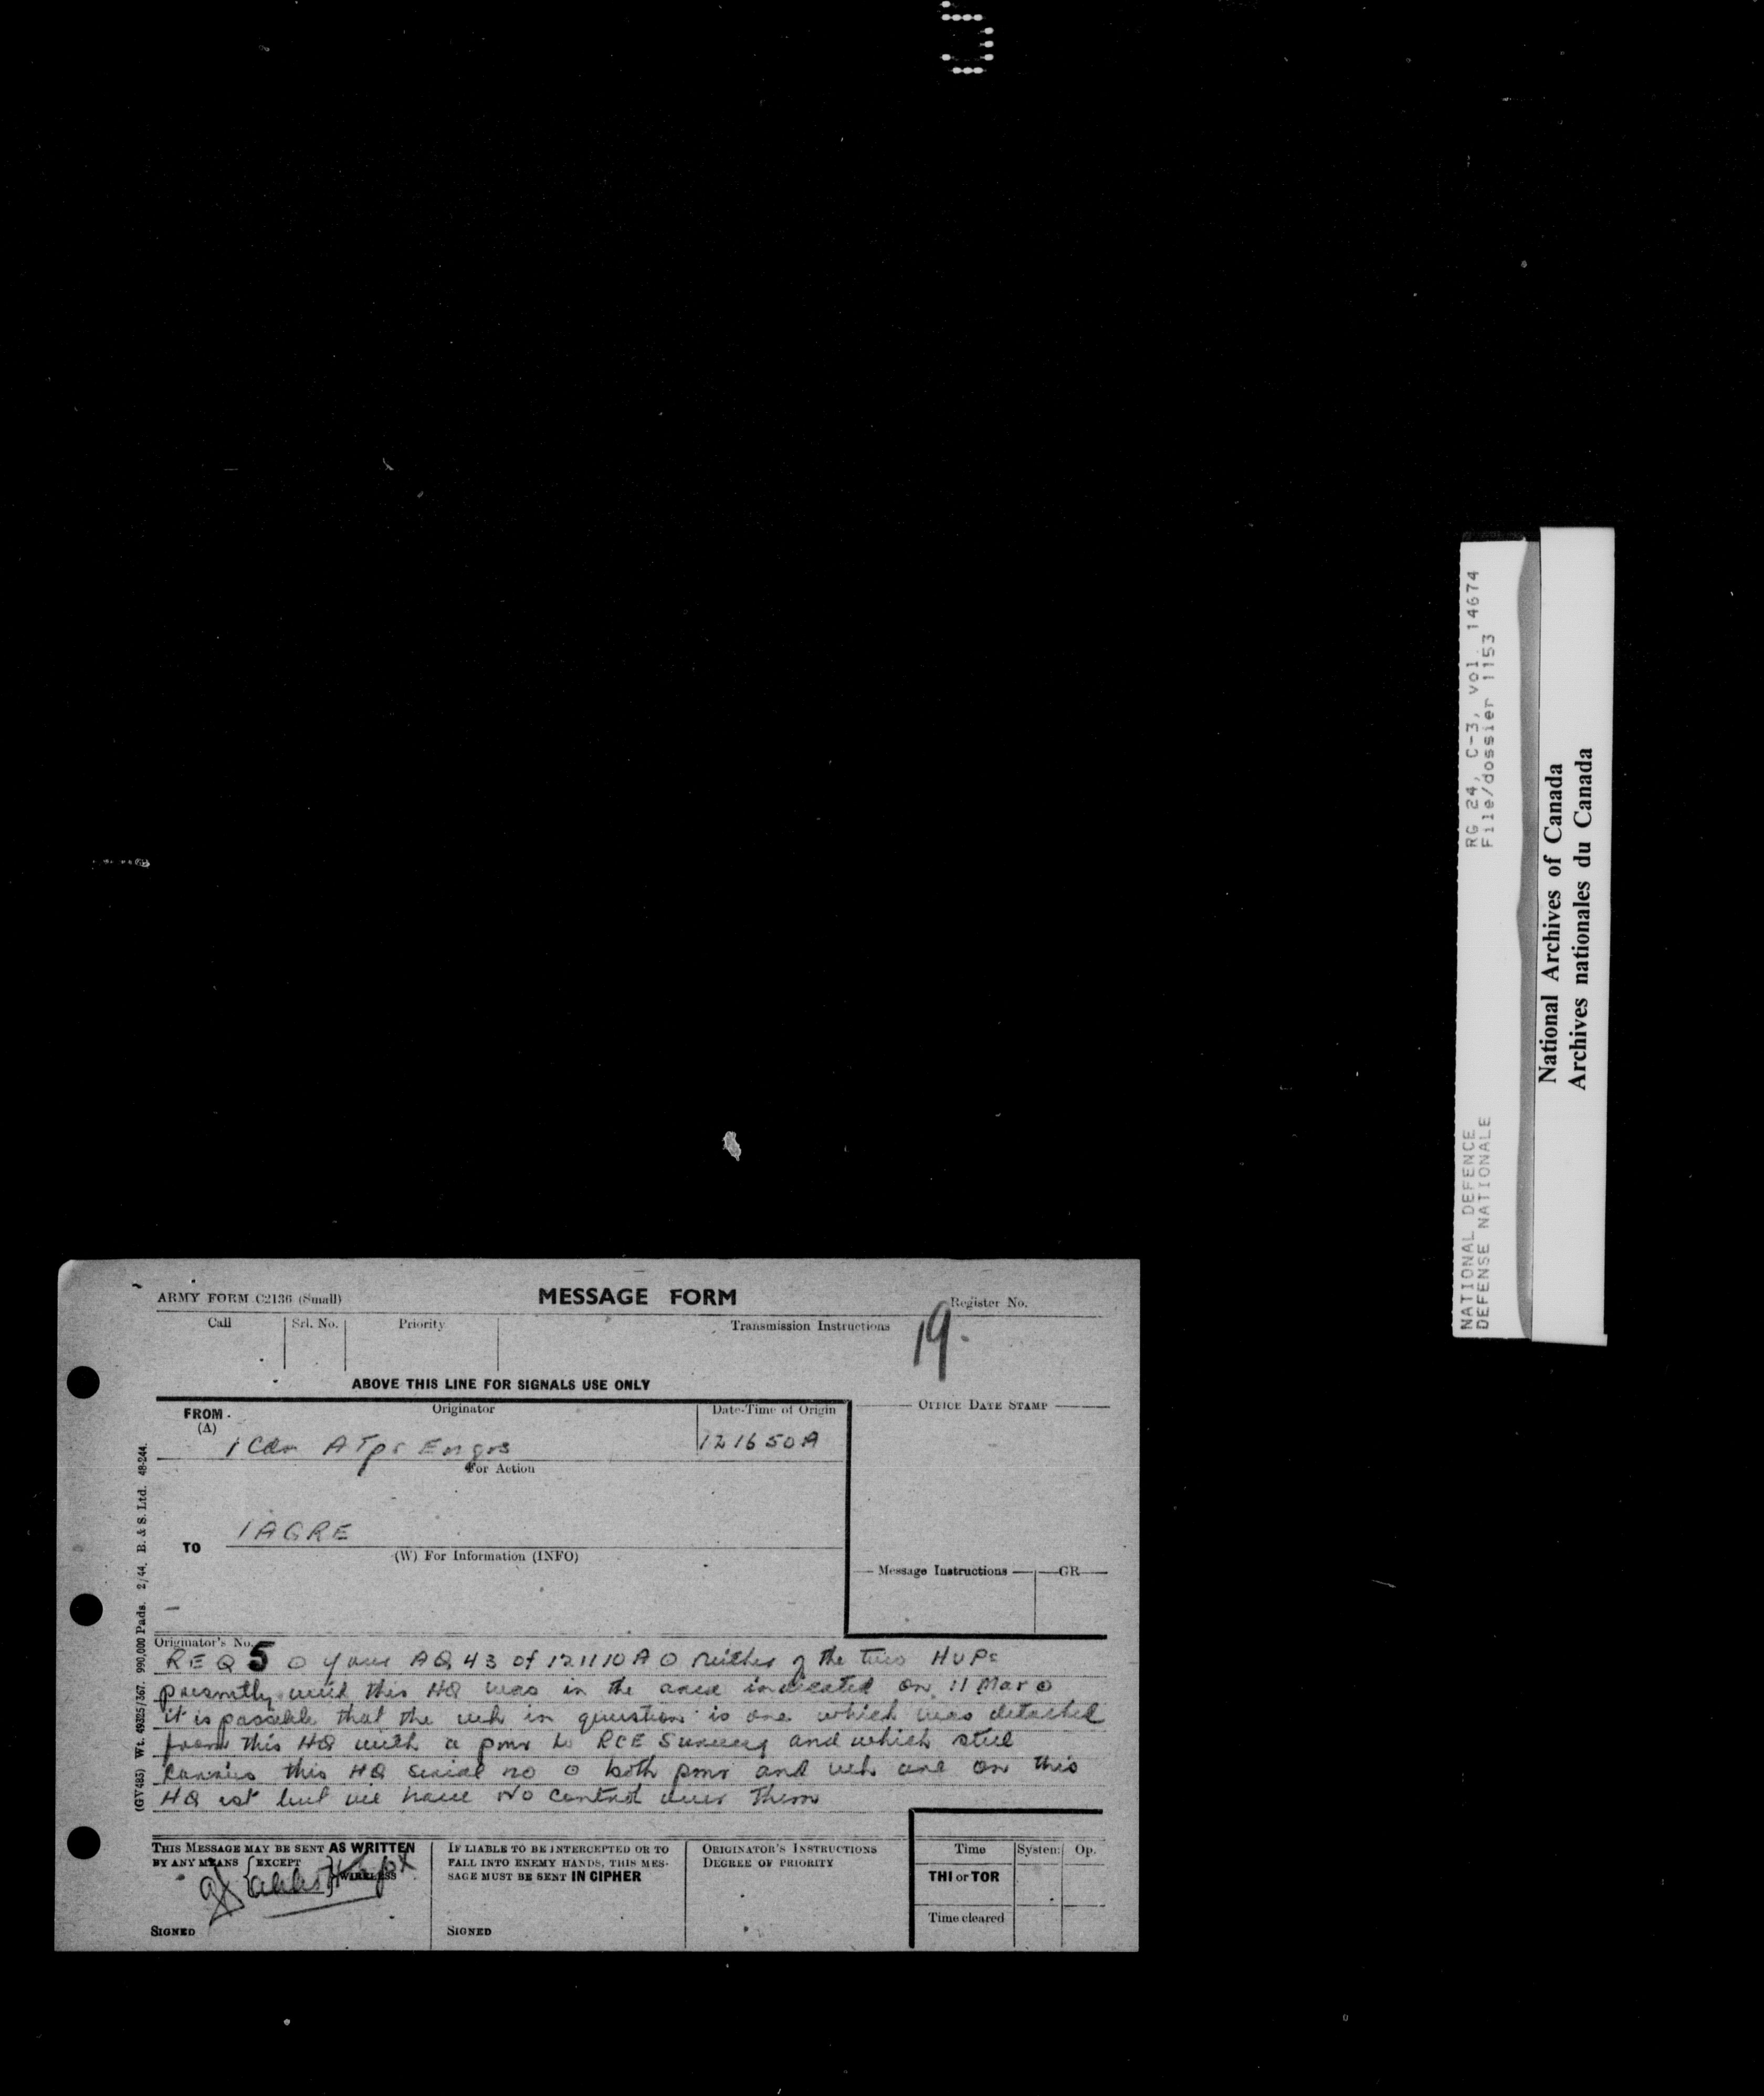 ARMY FORM C2136 (Small)
MESSAGE FORM
Register No.
Call
Srl. No.
Priority
Transmission Instructions
19.
ABOVE THIS LINE FOR SIGNALS USE ONLY
FROM
(A)
Originator
Date-Time of Origin
OFFICE DATE STAMP
1 Cdn A Tps Engrs
121650A
For Action
1 AGRE
TO
(W) For Information (INFO)
Message Instructions
GR
Originator's No.
REQ 5 O your AQ 43 of 121110A O neither of the two HUPs
presently with this HQ was in the area indicated on 11 Mar O
it is possible that the veh in question is one which was detached
from this HQ with a pmr to RCE Survey and which still
carries this HQ serial no O both pmr and veh are on this
HQ est but we have No control over them
THIS MESSAGE MAY BE SENT AS WRITTEN
BY ANY MEANS { EXCEPT } WIRELESS
SIGNED
IF LIABLE TO BE INTERCEPTED OR TO
FALL INTO ENEMY HANDS, THIS MES-
SAGE MUST BE SENT IN CIPHER
SIGNED
ORIGINATOR'S INSTRUCTIONS
DEGREE OF PRIORITY
Time
System
Op.
THI or TOR
Time cleared
(GV 485) Wt. 49325/367. 990,000 Pads. 2/44. B. & S. Ltd. 48-244.
NATIONAL DEFENCE
DEFENSE NATIONALE
RG 24, C-3, vol. 14674
File/dossier 1153
National Archives of Canada
Archives nationales du Canada